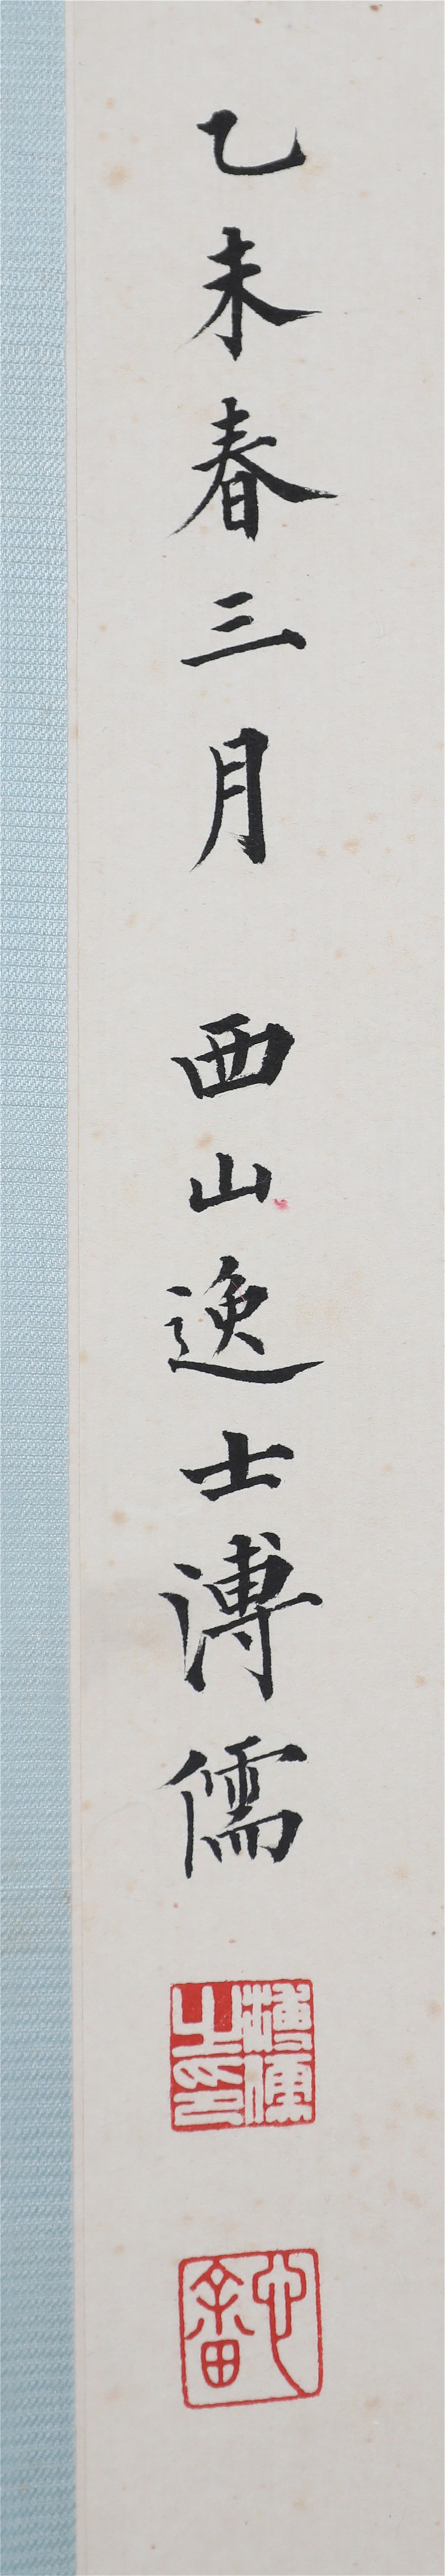 乙未春三月 西山逸士溥儒
溥儒之印
心畬